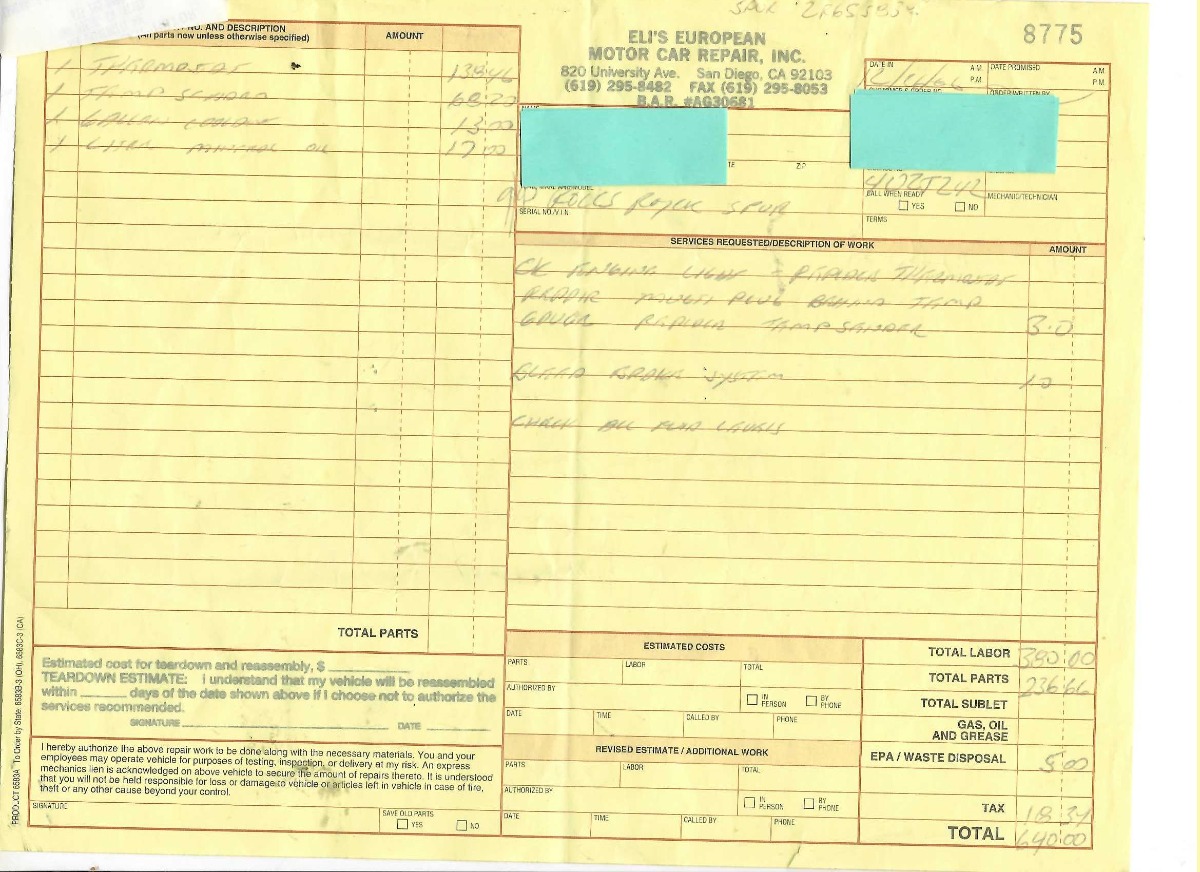 8775
NO. AND DESCRIPTION
(All parts new unless otherwise specified)
AMOUNT
1 THERMOSTAT
1 TEMP SENDER
1 GALLON COOLANT 13 00
1 MINERAL OIL 17 00
TOTAL PARTS
ELI'S EUROPEAN
MOTOR CAR REPAIR, INC.
820 University Ave. San Diego, CA 92103
(619) 295-8482 FAX (619) 295-8053
B.A.R. #AG30681
DATE IN
A.M.
P.M.
DATE PROMISED
A.M.
P.M.
ORDER WRITTEN BY
NAME
ZIP
ROLLS ROYCE SPUR
SERIAL NO./V.I.N.
4UZJ242
CALL WHEN READY
YES
NO
MECHANIC/TECHNICIAN
TERMS
SERVICES REQUESTED/DESCRIPTION OF WORK
AMOUNT
CK ENGINE LIGHT - REPLACE THERMOSTAT
REPAIR MULTI PLUG BEHIND TEMP
GAUGE REPLACE TEMP SENDER 3.0
BLEED BRAKE SYSTEM
CHECK ALL FLUID LEVELS
Estimated cost for teardown and reassembly, $
TEARDOWN ESTIMATE: I understand that my vehicle will be reassembled
within days of the date shown above if I choose not to authorize the
services recommended.
SIGNATURE DATE
I hereby authorize the above repair work to be done along with the necessary materials. You and your
employees may operate vehicle for purposes of testing, inspection, or delivery at my risk. An express
mechanics lien is acknowledged on above vehicle to secure the amount of repairs thereto. It is understood
that you will not be held responsible for loss or damage to vehicle or articles left in vehicle in case of fire,
theft or any other cause beyond your control.
SIGNATURE
SAVE OLD PARTS
YES
NO
ESTIMATED COSTS
PARTS
LABOR
TOTAL
AUTHORIZED BY
IN PERSON
BY PHONE
DATE
TIME
CALLED BY
PHONE
REVISED ESTIMATE / ADDITIONAL WORK
PARTS
LABOR
TOTAL
AUTHORIZED BY
IN PERSON
BY PHONE
DATE
TIME
CALLED BY
PHONE
TOTAL LABOR 380 00
TOTAL PARTS 236 66
TOTAL SUBLET
GAS, OIL
AND GREASE
EPA / WASTE DISPOSAL 5 00
TAX 18 34
TOTAL 640 00
PRODUCT 6583A To Order by State: 6583B-3 (OH), 6583C-3 (CA)